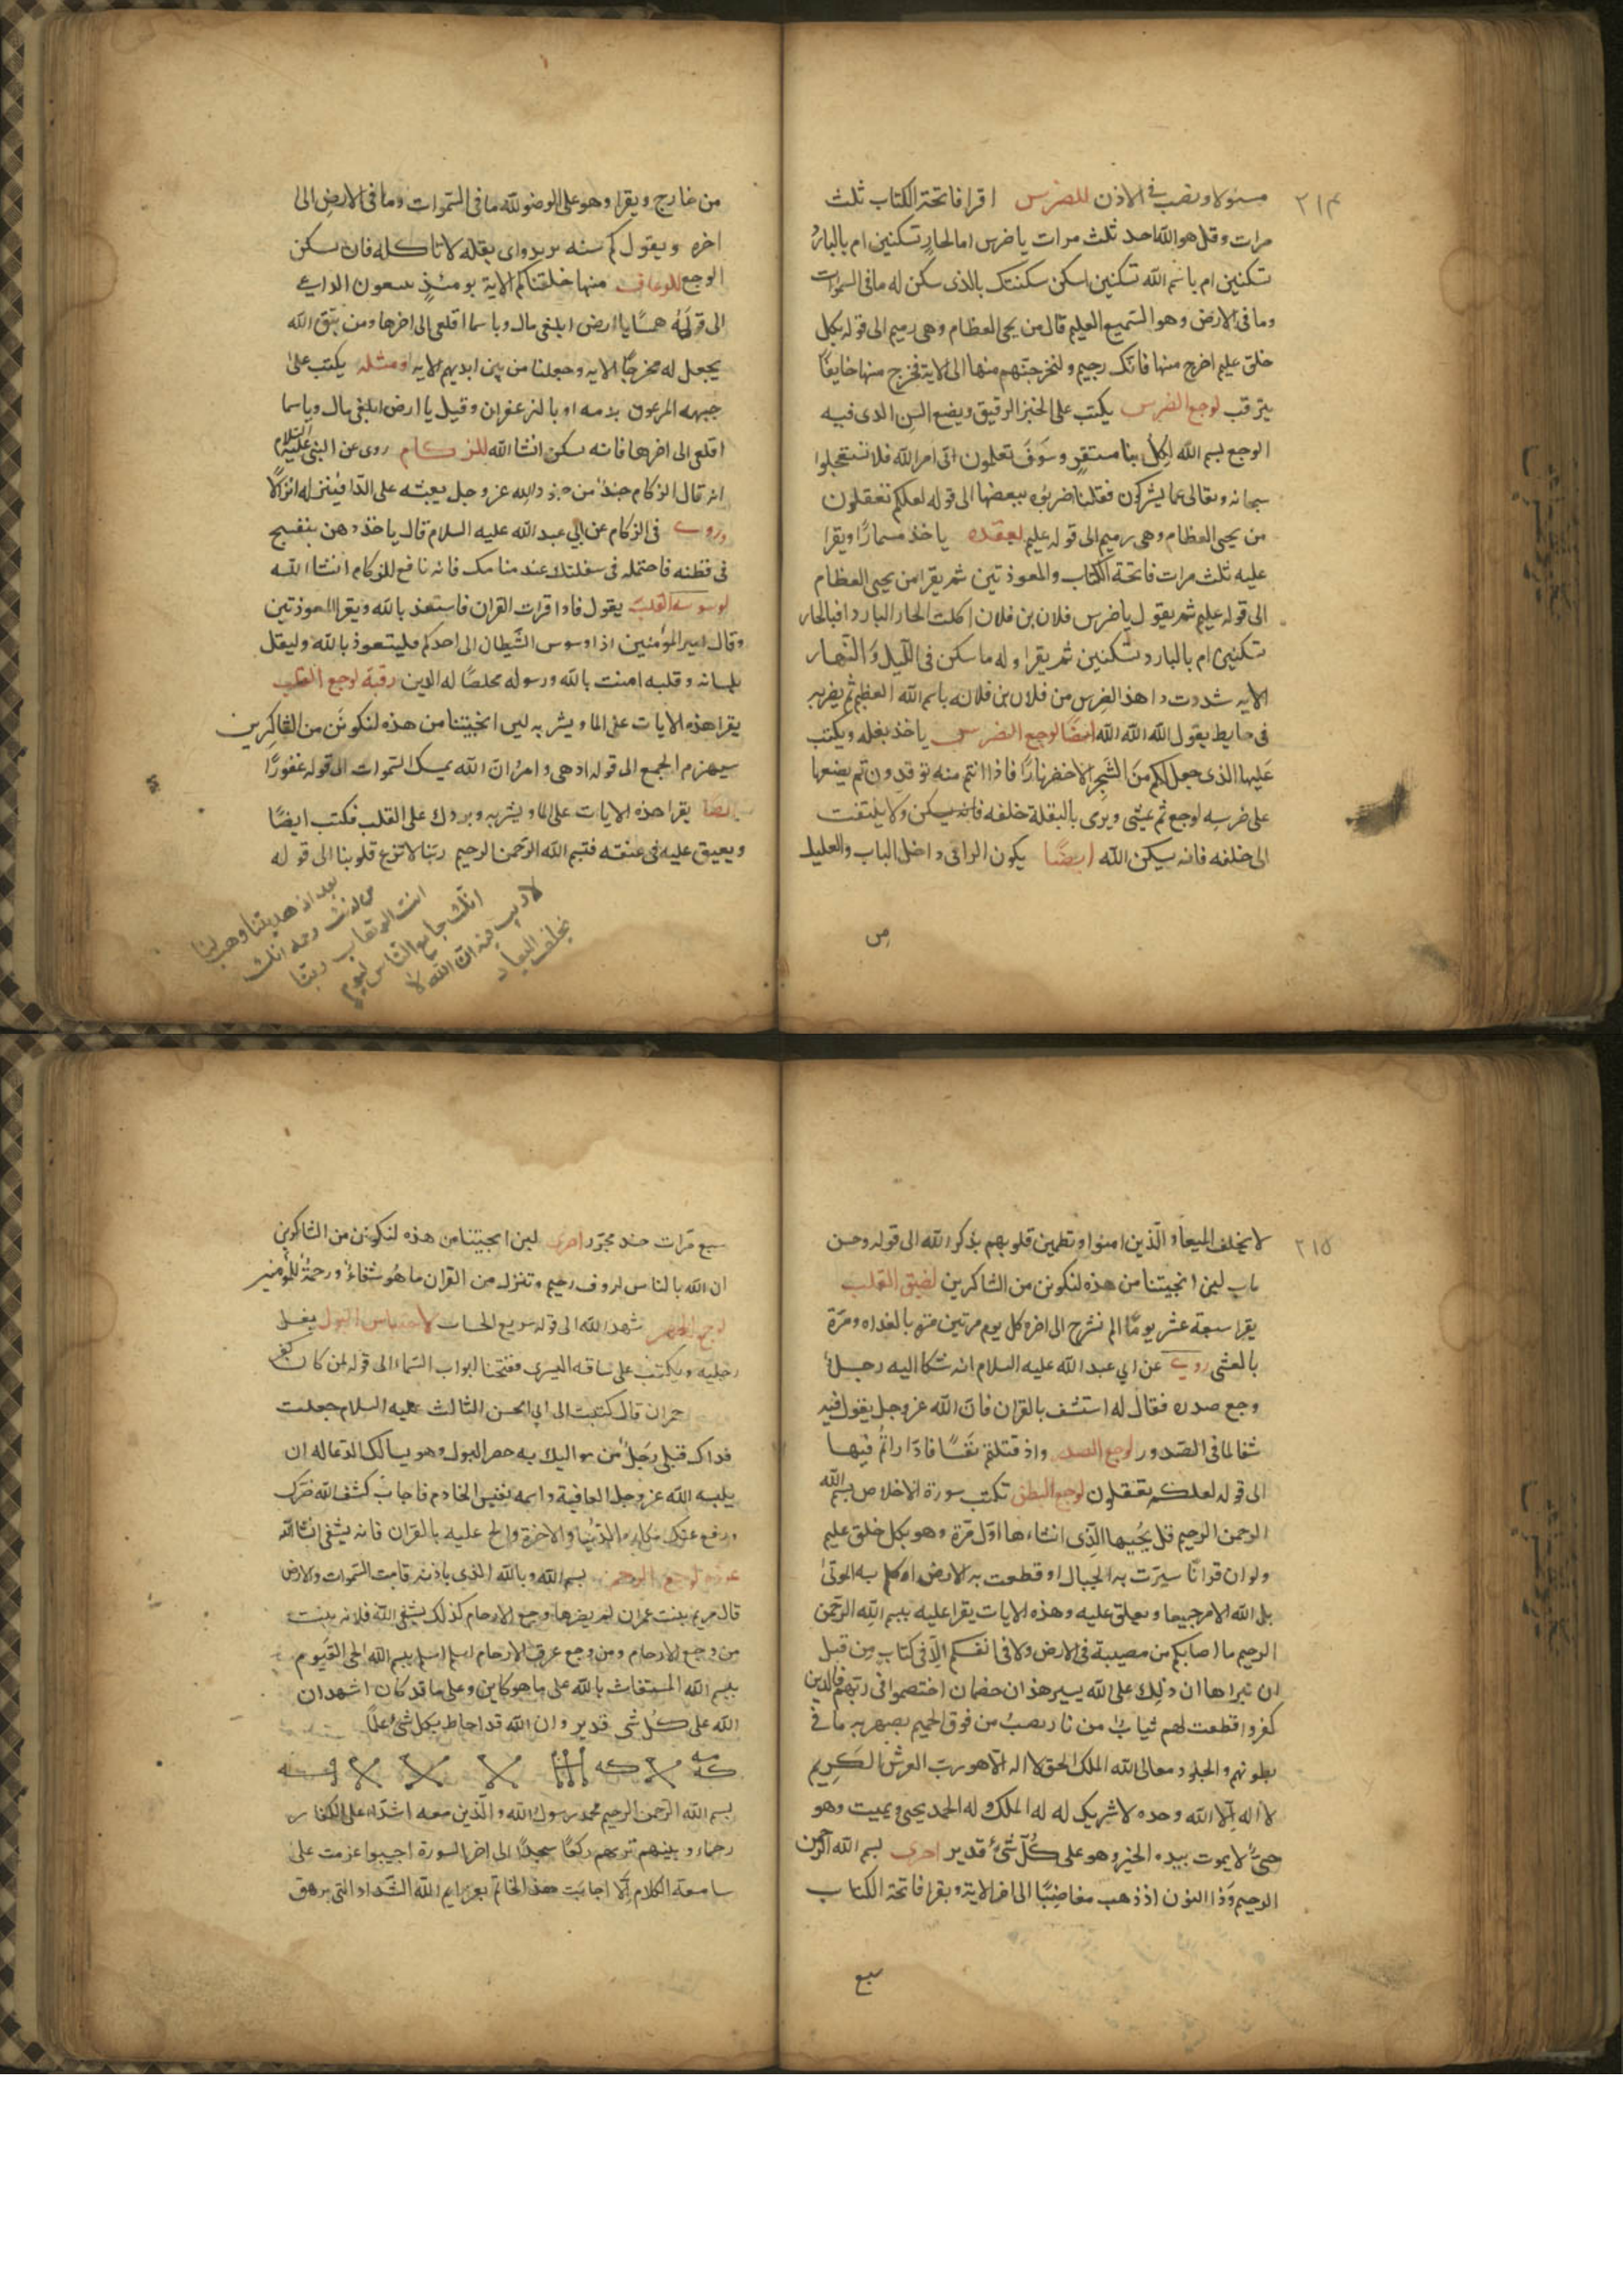 ٢١٤
مسئولا ويصب في الاذن للضرس اقرا فاتحة الكتاب ثلث
مرات وقل هو الله احد ثلث مرات يا ضرس ابالحار تسكنين ام بالبارد
تسكنين ام باسم الله تسكنين اسكن سكنتك بالذى سكن له ما فى السموات
وما فى الارض وهو السميع العليم قال من يحى العظام وهى رميم الى قوله بكل
خلق عليم اخرج منها فانك رجيم ولنخرجنهم منها الى الاية فخرج منها خايفا
يترقب لوجع الضرس يكتب على الخبز الرقيق ويضع السن الذى فيه
الوجع بسم الله لكل نبا مستقر وسوف تعلمون اتى امر الله فلا تستعجلوا
سبحانه وتعالى عما يشركون فقلنا اضربوه ببعضها الى قوله لعلكم تعقلون
من يحيى العظام وهى رميم الى قوله عليم لعقده ياخذ مسمارا ويقرا
عليه ثلث مرات فاتحة الكتاب والمعوذتين ثم يقرا من يحيى العظام
الى قوله عليم ثم يقول يا ضرس فلان بن فلان اكلت الحار البارد افبالحار
تسكنين ام بالبارد تسكنين ثم يقرا وله ما سكن فى الليل والنهار
الايه شددت دا هذا الضرس من فلان بن فلانه باسم الله العظيم ثم يضربه
فى حايط يقول الله الله الله ايضا لوجع الضرس ياخذ بقله ويكتب
عليها الذى جعل لكم من الشجر الاخضر نارا فاذا انتم منه توقدون ثم يضعها
على ضرسه لوجع ثم يمشى ويرى بالبقلة خلفه فانه يسكن ولا يلتفت
الى خلفه فانه يسكن الله ايضا يكون الراقى داخل الباب والعليل
من
من خارج ويقرا وهو على الوضو لله ما فى السموات وما فى الارض الى
اخره ويقول كم سنه يريد واى بقله لا تاكله فان سكن
الوجع للرعاف منها خلقناكم الاية يومئذ يتبعون الداعى
الى قوله همسا يا ارض ابلعى ماك ويا سما اقلعى الى اخرها ومن يتق الله
يجعل له مخرجا الايه وجعلنا من بين ايديهم الايه ومثله يكتب على
جبهه المرعوف بدمه او بالزعفران وقيل يا ارض ابلعى ماك ويا سما
اقلعى الى اخرها فانه يسكن انشا الله للزكام روى عن النبى عليه السلام
انه قال الزكام جند من جنود الله عز وجل يبعثه على الدا فينزله انزالا
وروى فى الزكام عن ابي عبد الله عليه السلام قال ياخذ دهن بنفسج
فى قطنه فاحتمله فى سفلتك عند منامك فانه نافع للزكام انشا الله
لوسوسه القلب يقول فاذا قرات القران فاستعذ بالله ويقرا المعوذتين
وقال امير المؤمنين اذا وسوس الشيطان الى احدكم فليتعوذ بالله وليقل
بلسانه وقلبه امنت بالله ورسوله مخلصا له الدين رقية لوجع القلب
يقرا هذه الايات على الما ويشربه لين انجيتنا من هذه لنكونن من الشاكرين
سيهزم الجمع الى قوله ادهى وامر ان الله يمسك السموات الى قوله غفورا
ايضا يقرا هذه الايات على الما ويشربه ويردك على القلب فكتب ايضا
ويعيق عليه فى عنقه فبسم الله الرحمن الرحيم ربنا لا تزغ قلوبنا الى قوله
بعد اذ هديتنا وهب لنا
من لدنك رحمه انك
انت الوهاب ربنا
انك جامع الناس ليوم
لا ريب فيه ان الله لا
يخلف الميعاد
٢١٥
لا يخلف الميعاد والذين امنوا وتطمين قلوبهم بذكر الله الى قوله وحسن
ماب لين انجيتنا من هذه لنكونن من الشاكرين لضيق القلب
يقرا سبعة عشر يوما الم نشرح الى اخره كل يوم مرتين مره بالغداه ومرة
بالعشى روى عن ابي عبد الله عليه السلام انه شكا اليه رجل
وجع صدره فقال له استشف بالقران فان الله عز وجل يقول فيه
شفا لما فى الصدور لوجع الصدر واذ قتلتم نفسا فادارأتم فيها
الى قوله لعلكم تعقلون لوجع البطن تكتب سورة الاخلاص بسم الله
الرحمن الرحيم قل يحييها الذى انشاءها اول مرة وهو بكل خلق عليم
ولو ان قرانا سيرت به الجبال او قطعت به الارض او كلم به الموتى
بل الله الامر جميعا ويعلق عليه وهذه الايات يقرا عليه بسم الله الرحمن
الرحيم ما اصابكم من مصيبة فى الارض ولا فى انفسكم الا فى كتاب من قبل
ان نبراها ان ذلك على الله يسير هذان خصمان اختصموا فى ربهم فالذين
كفروا قطعت لهم ثياب من نار يصب من فوق الحميم يصهر به ما فى
بطونهم والجلود تعالى الله الملك الحق لا اله الا هو رب العرش الكريم
لا اله الا الله وحده لا شريك له له الملك وله الحمد يحيى ويميت وهو
حى لا يموت بيده الخير وهو على كل شئ قدير اخرى بسم الله الرحمن
الرحيم وذا النون اذ ذهب مغاضبا الى اخر الاية ويقرا فاتحة الكتاب
سبع
سبع مرات جند مجرد اخرى لين انجيتنا من هذه لنكونن من الشاكرين
ان الله بالناس لروف رحيم وتنزل من القران ما هو شفاء ورحمة للمؤمنين
لوجع الخصر شهد الله الى قوله سريع الحساب لاحتباس البول يغسل
رجليه ويكتب على ساقه اليسرى ففتحنا ابواب السماء الى قوله لمن كان كفر
حمران قال كتبت الى ابي الحسن الثالث عليه السلام جعلت
فداك قبلى رجل من مواليك به حصر البول وهو يسالك الدعا له ان
يلبسه الله عز وجل العافية واسمه نفيس الخادم فاجاب كشف الله ضرك
ودفع عنك مكاره الدنيا والاخرة والح عليه بالقران فانه يشفى انشا الله
عوذه لوجع الرحم بسم الله وبالله الذى باذنه قامت السموات والارض
قال مريم بنت عمران لم يضرها وجع الارحام كذلك يشفى الله فلانه بنت
من وجع الارحام ومن وجع عرق الارحام اسلم اسلم بسم الله الحى القيوم
بسم الله المستغاث بالله على ما هو كاين وعلى ما قد كان اشهد ان
الله على كل شى قدير وان الله قد احاط بكل شئ علما
بسم الله الرحمن الرحيم محمد رسول الله والذين معه اشداء على الكفار
رحماء بينهم تريهم ركعا سجدا الى اخر السورة اجيبوا عزمت على
سامعة الكلام الا اجابت هذا الخاتم بعزايم الله الشداد التى تزهق